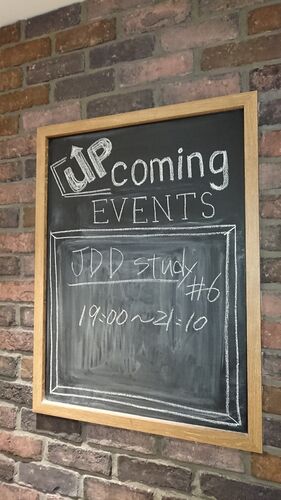 UPcoming
EVENTS
JDD study
#6
19:00~21:10